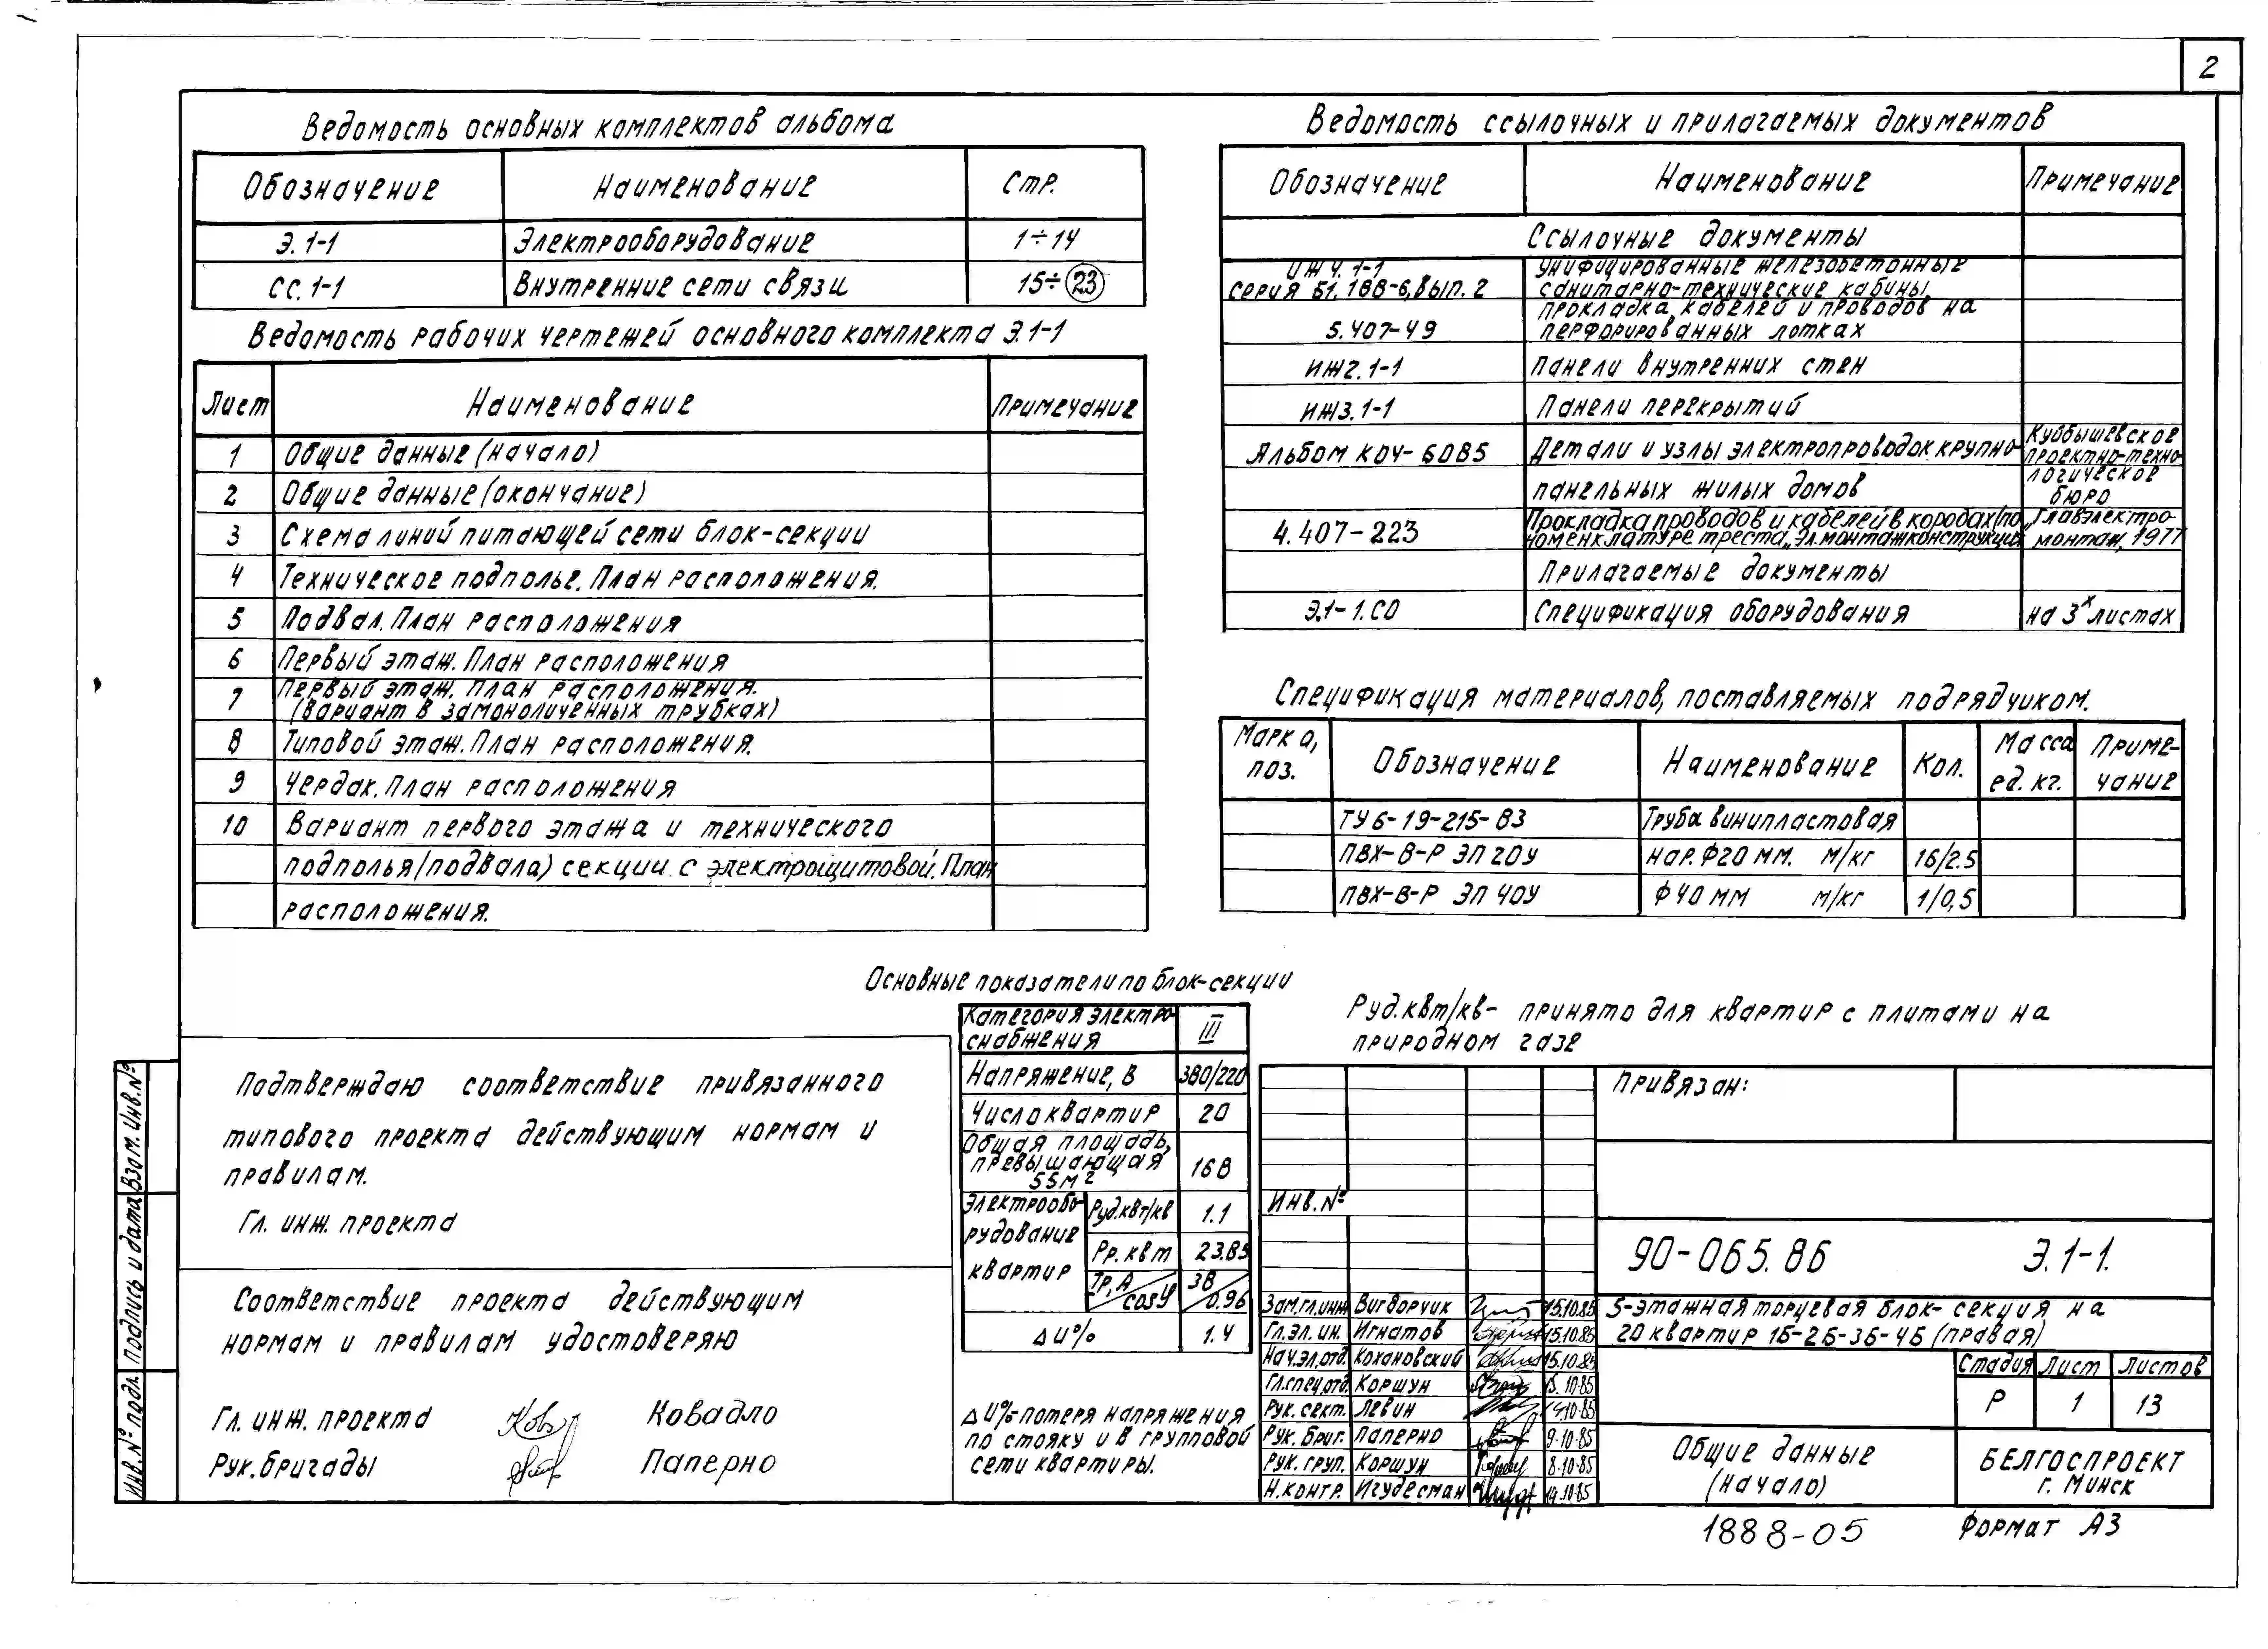 2
Ведомость основных комплектов альбома
Обозначение Наименование Стр.
Э.1-1 Электрооборудование 1÷14
СС.1-1 Внутренние сети связи 15÷23
Ведомость рабочих чертежей основного комплекта Э.1-1
Лист Наименование Примечание
1 Общие данные (начало)
2 Общие данные (окончание)
3 Схема линий питающей сети блок-секции
4 Техническое подполье. План расположения.
5 Подвал. План расположения
6 Первый этаж. План расположения
7 Первый этаж. План расположения.
(вариант в замоноличенных трубках)
8 Типовой этаж. План расположения.
9 Чердак. План расположения
10 Вариант первого этажа и технического
подполья (подвала) секции с электрощитовой. План
расположения.
Ведомость ссылочных и прилагаемых документов
Обозначение Наименование Примечание
Ссылочные документы
ИЖ4.1-1 Унифицированные железобетонные
серия Б1.188-6, вып. 2 санитарно-технические кабины
Прокладка кабелей и проводов на
5.407-49 перфорированных лотках
ИЖ2.1-1 Панели внутренних стен
ИЖ3.1-1 Панели перекрытий
Альбом КОЧ-6085 Детали и узлы электропроводок крупно- Куйбышевское
проектно-техно-
панельных жилых домов логическое
бюро
4.407-223 Прокладка проводов и кабелей в коробах (по „Главэлектро-
номенклатуре треста „Эл.монтажконструкция монтаж, 1977
Прилагаемые документы
Э.1-1.СО Спецификация оборудования на 3х листах
Спецификация материалов, поставляемых подрядчиком.
Марка, поз. Обозначение Наименование Кол. Масса ед. кг. Приме-чание
ТУ6-19-215-83 Труба винипластовая
ПВХ-В-Р ЭП 20У нар. Ф20 мм. м/кг 16/2.5
ПВХ-В-Р ЭП 40У Ф40 мм м/кг 1/0,5
Основные показатели по блок-секции
Категория электро-
снабжения III
Напряжение, В 380/220
Число квартир 20
Общая площадь,
превышающая
55м2 168
Электрообо-
рудование
квартир
Руд.квт/кв 1.1
Рр. квт 23.85
Iр, А/cosφ 38/0.96
ΔU% 1.4
ΔU%-потеря напряжения
по стояку и в групповой
сети квартиры.
Руд.квт/кв- принято для квартир с плитами на
природном газе
Подтверждаю соответствие привязанного
типового проекта действующим нормам и
правилам.
Гл. инж. проекта
Соответствие проекта действующим
нормам и правилам удостоверяю
Гл. инж. проекта Ковадло
Рук. бригады Паперно
Взам. Инв.№
Подпись и дата
Инв.№ подл.
Привязан:
Инв.№
90-065.86 Э.1-1.
Зам.гл.инж Вигдорчик 15.10.85
Гл.эл.ин. Игнатов 15.10.85
Нач.эл.отд. Кохановский 15.10.85
Гл.спец.отд. Коршун 15.10.85
Рук. сект. Левин 14.10.85
Рук. бриг. Паперно 9.10.85
Рук. груп. Коршун 8.10.85
Н.контр. Игудесман 14.10.85
5-этажная торцевая блок-секция на
20 квартир 1Б-2Б-3Б-4Б (правая)
Стадия Лист Листов
Р 1 13
Общие данные
(начало)
БЕЛГОСПРОЕКТ
г. Минск
1888-05 Формат А3